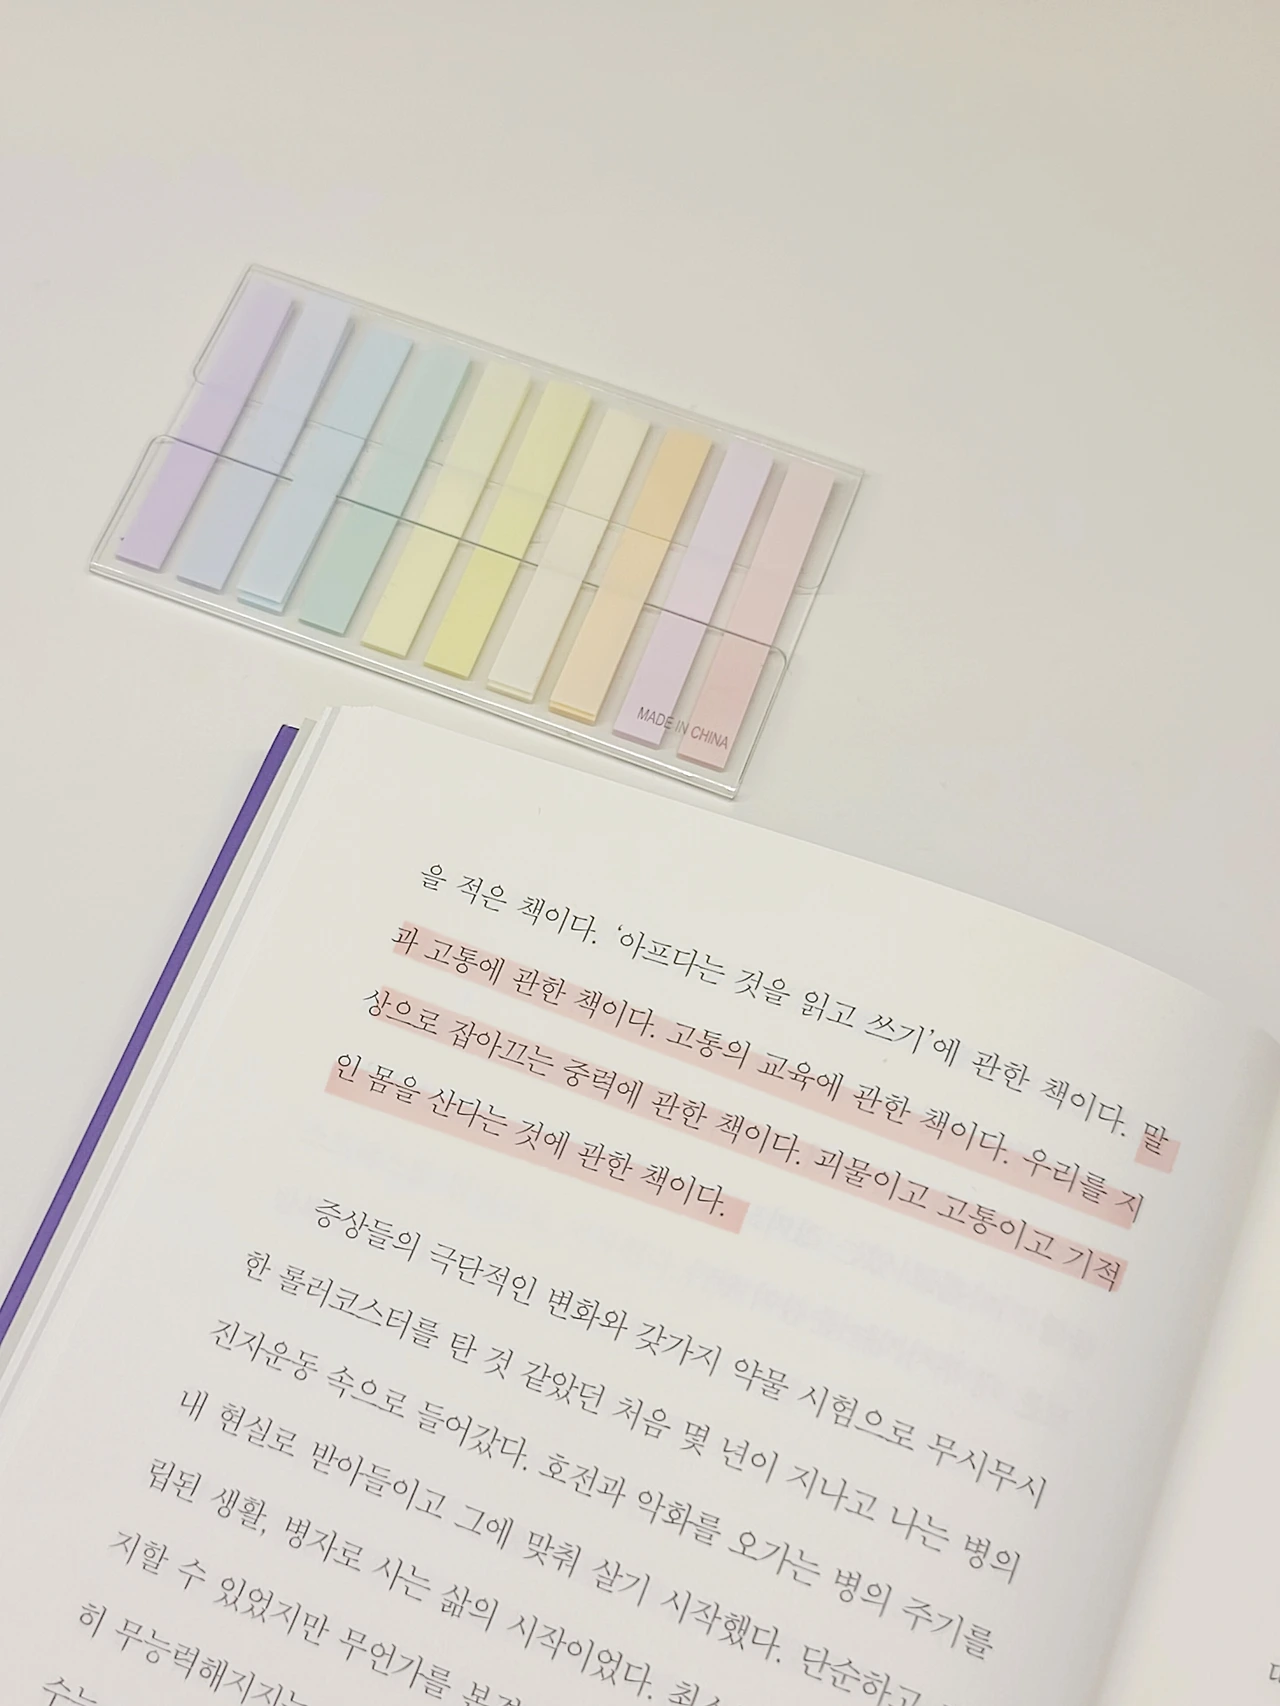 MADE IN CHINA
을 적은 책이다. ‘아프다는 것을 읽고 쓰기’에 관한 책이다. 말
과 고통에 관한 책이다. 고통의 교육에 관한 책이다. 우리를 지
상으로 잡아끄는 중력에 관한 책이다. 괴물이고 고통이고 기적
인 몸을 산다는 것에 관한 책이다.
증상들의 극단적인 변화와 갖가지 약물 시험으로 무시무시
한 롤러코스터를 탄 것 같았던 처음 몇 년이 지나고 나는 병의
진자운동 속으로 들어갔다. 호전과 악화를 오가는 병의 주기를
내 현실로 받아들이고 그에 맞춰 살기 시작했다. 단순하고
립된 생활, 병자로 사는 삶의 시작이었다.
지할 수 있었지만 무언가를
히 무능력해지
수는